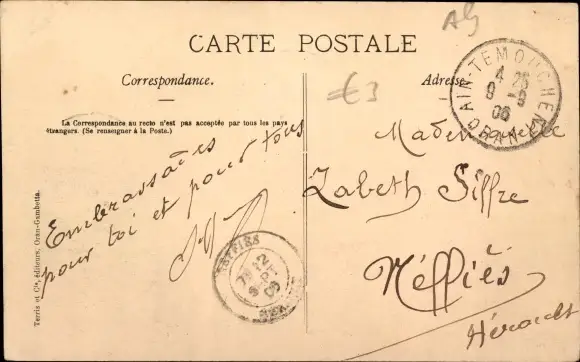 Alg
CARTE POSTALE
Correspondance.
€3
Adresse
La Correspondance au recto n'est pas acceptée par tous les pays
étrangers. (Se renseigner à la Poste.)
AIN-TEMOUCHENT
4 25
9 -9
06
ORAN
Mademoiselle
Zabeth Siffre
Néffiès
Hérault
Embrassades
pour toi et pour tous
NEFFIES
12
SEPT
HERAULT
Terris et Cie, éditeurs, Oran-Gambetta.